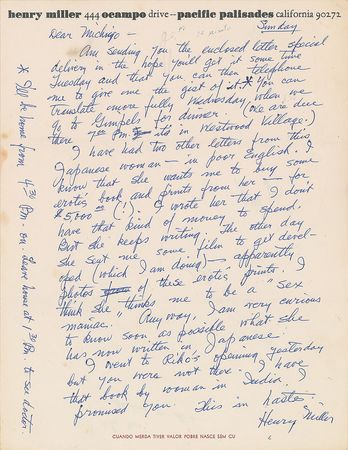 henry miller 444 ocampo drive -- pacific palisades california 90272
Sunday
Dear Michiyo -
Am sending you the enclosed letter special
delivery in the hope you'll get it some time
Tuesday and that you can then telephone
me to give one the gist of it.* You can
translate more fully Wednesday when we
go to Gimpels for dinner. (We are due
there 7:00 P.M. - it's in Westwood Village.)
I have had two other letters from this
Japanese woman - in poor English. I
know that she wants me to buy some
erotic book and prints from her - for
$5,000 00 (!). I wrote her that I don't
have that kind of money to spend.
But she keeps writing. The other day
she sent me some film to get devel-
oped (which I am doing) - apparently
photos of these erotic prints. I
think she thinks me to be a "sex
maniac." Anyway, I am very curious
to know soon as possible what she
has now written in Japanese.
I went to Riko's opening yesterday
but you were not there. I have
that book by woman in India I
promised you. This in haste.
Henry Miller
* I'll be home from 4:30 P.M. on. Leave house at 1:30 P.M. to see doctor.
CUANDO MERDA TIVER VALOR POBRE NASCE SEM CU